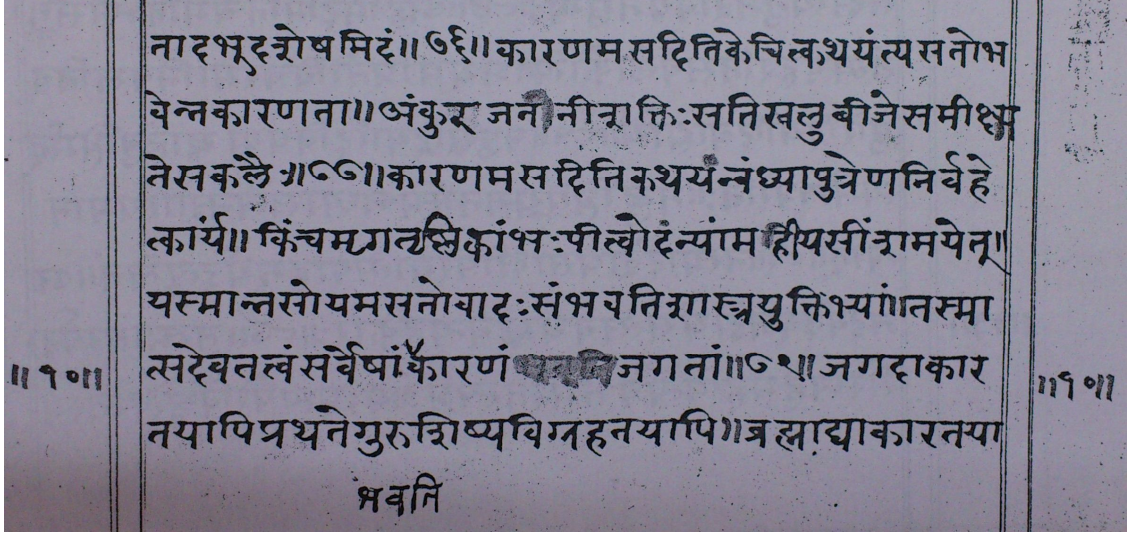 तादभूदशेषमिदं॥७६॥कारणमसदितिकेचित्कथयंत्यसतोभ
वेन्तकारणता॥अंकुरजननीशक्तिःसतिखलुबीजेसमीक्ष्य
तेसकलैः॥७७॥कारणमसदितिकथयंन्वंध्यापुत्रेणनिर्वहे
त्कार्यं॥किंचमृगतृष्णिकांभःपीत्वोदंन्यांमहीयसींशमयेत्॥
यस्मान्तसोयमसतोवादःसंभवतिशास्त्रयुक्तिभ्यां॥तस्मा
॥१०॥ त्सदेवतत्वंसर्वेषांकारणं जगतां॥७९॥जगदाकार ॥१०॥
तयापिप्रथतेगुरुशिष्यविग्रहतयापि॥ब्रह्माद्याकारतया
भवति